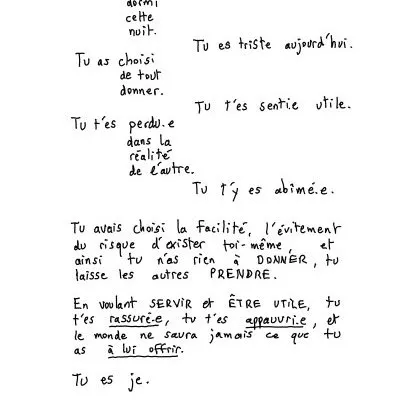 dormi
cette
nuit.
Tu es triste aujourd'hui.
Tu as choisi
de tout
donner.
Tu t'es sentie utile.
Tu t'es perdu.e
dans la
réalité
de l'autre.
Tu t'y es abîmé.e.
Tu avais choisi la facilité, l'évitement
du risque d'exister toi-même, et
ainsi tu n'as rien à DONNER, tu
laisse les autres PRENDRE.
En voulant SERVIR et ÊTRE UTILE, tu
t'es rassuré.e, tu t'es appauvri.e, et
le monde ne saura jamais ce que tu
as à lui offrir.
Tu es je.